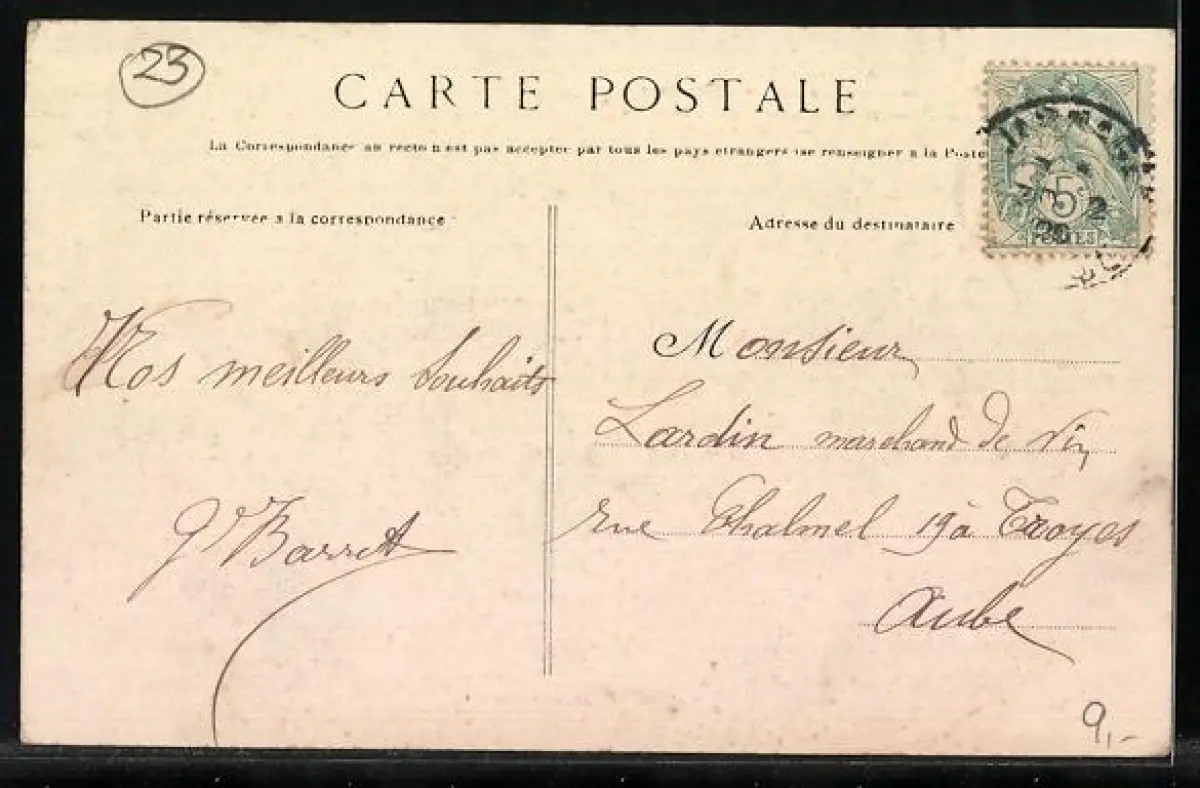 23
CARTE POSTALE
La Correspondance au recto n'est pas acceptée par tous les pays étrangers (se renseigner à la Poste
Partie réservée à la correspondance
Adresse du destinataire
5
POSTES
2
Nos meilleurs souhaits
Barret
Monsieur
Lardin marchand de vin
rue Chalmel 19 à Troyes
Aube
9,-